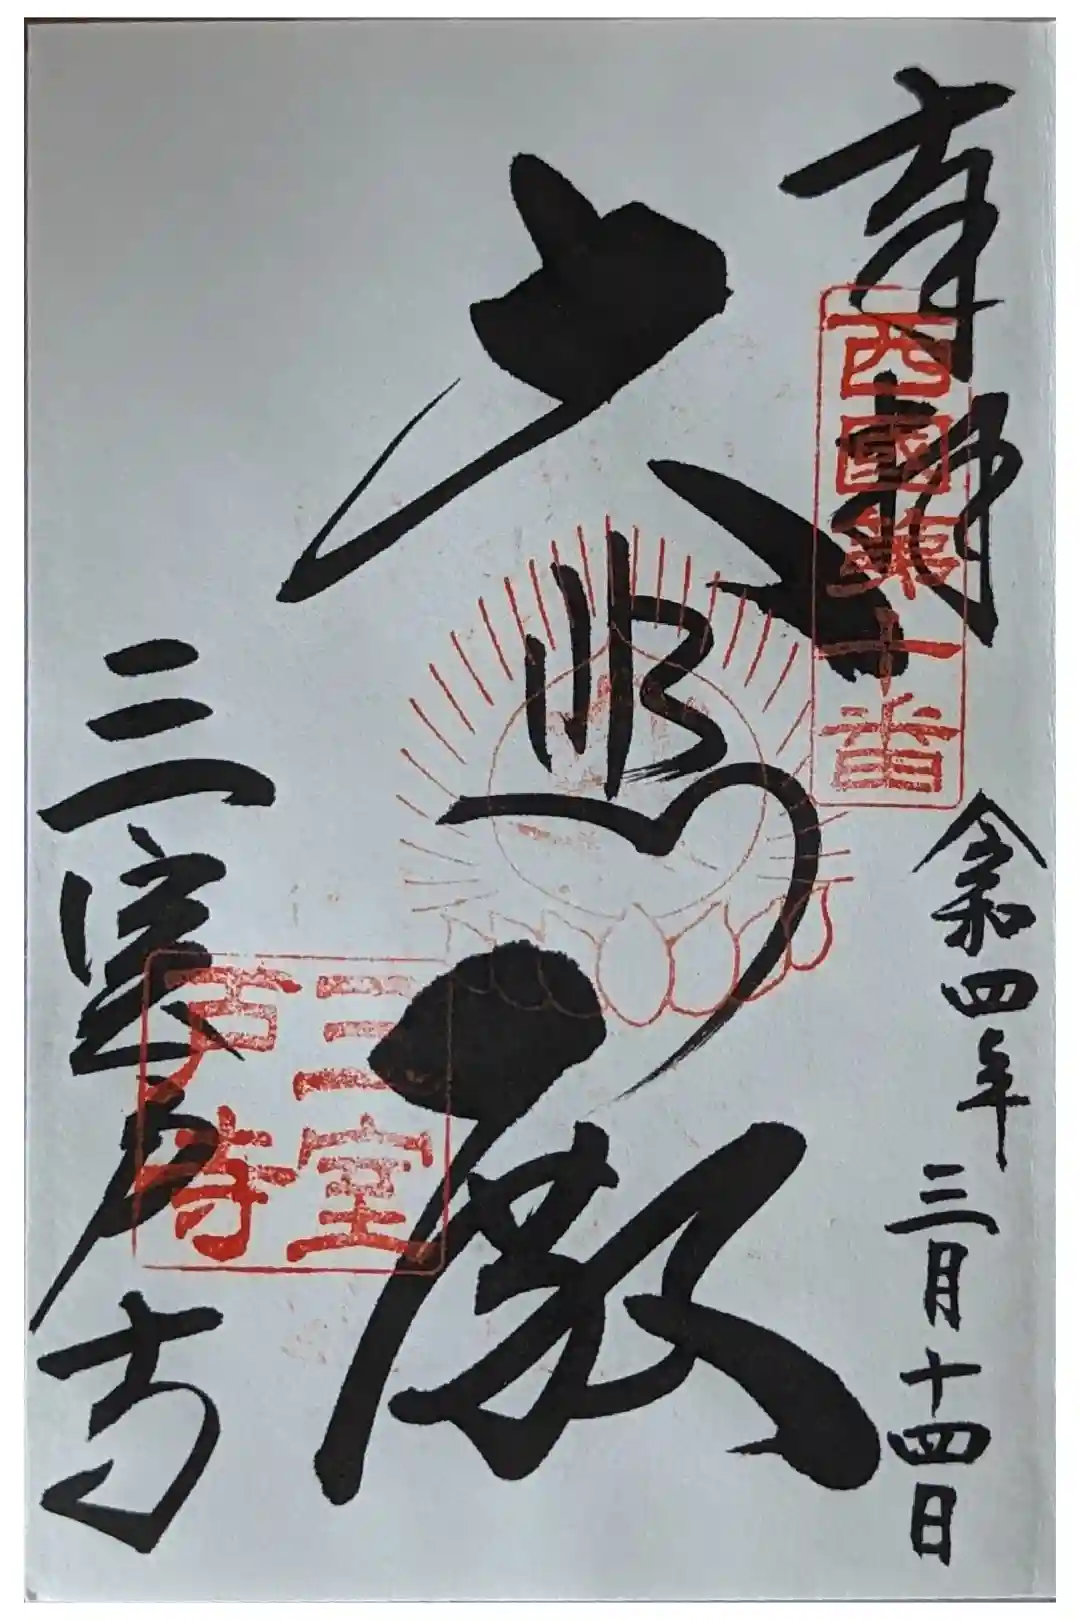 奉拝
西國第十番
令和四年三月十四日
大悲殿
三室戸寺
三室戸寺